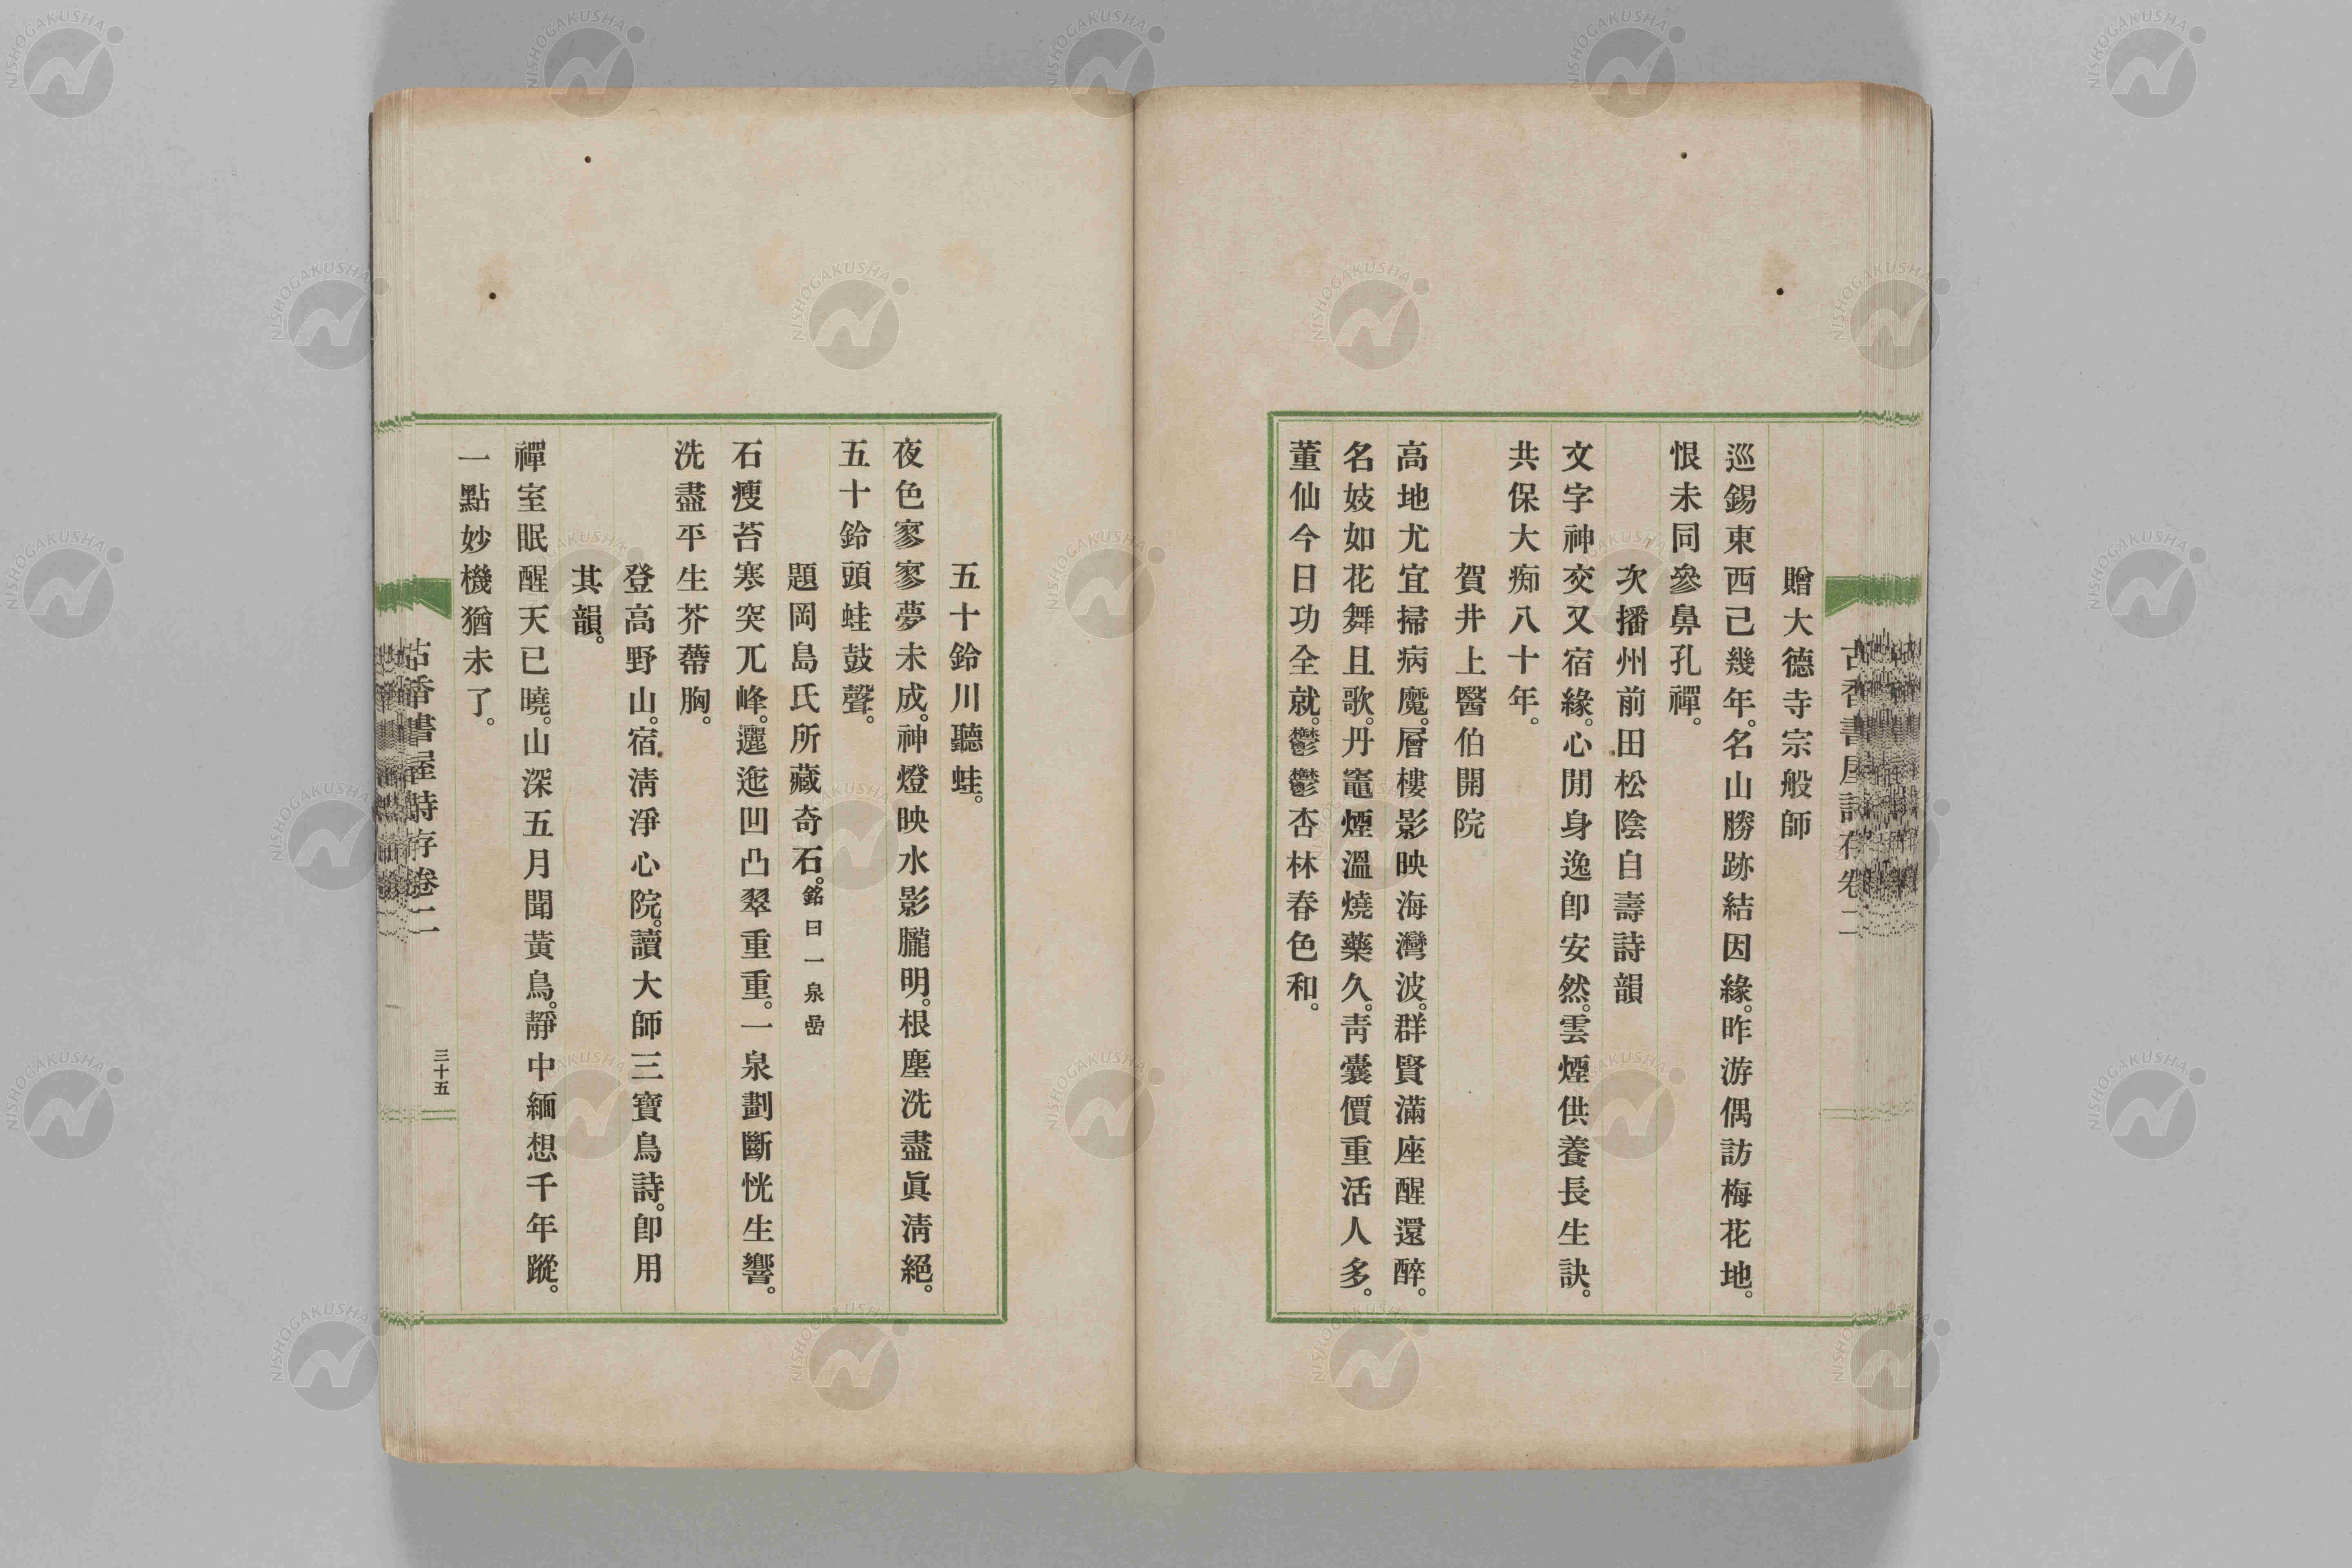 贈大德寺宗般師
巡錫東西已幾年。名山勝跡結因緣。昨游偶訪梅花地。
恨未同參鼻孔禪。
次播州前田松陰自壽詩韻
文字神交又宿緣。心閒身逸卽安然。雲煙供養長生訣。
共保大痴八十年。
賀井上醫伯開院
高地尤宜掃病魔。層樓影映海灣波。群賢滿座醒還醉。
名妓如花舞且歌。丹竈煙溫燒藥久。靑囊價重活人多。
董仙今日功全就。鬱鬱杏林春色和。
五十鈴川聽蛙。
夜色寥寥夢未成。神燈映水影朧明。根塵洗盡眞淸絕。
五十鈴頭蛙鼓聲。
題岡島氏所藏奇石。銘曰一泉嵒
石瘦苔寒突兀峰。邐迤凹凸翠重重。一泉劃斷恍生響。
洗盡平生芥蔕胸。
登高野山。宿淸淨心院。讀大師三寶鳥詩。卽用
其韻。
禪室眠醒天已曉。山深五月聞黃鳥。靜中緬想千年蹤。
一點妙機猶未了。
古香書屋詩存卷二
三十五
NISHOGAKUSHA